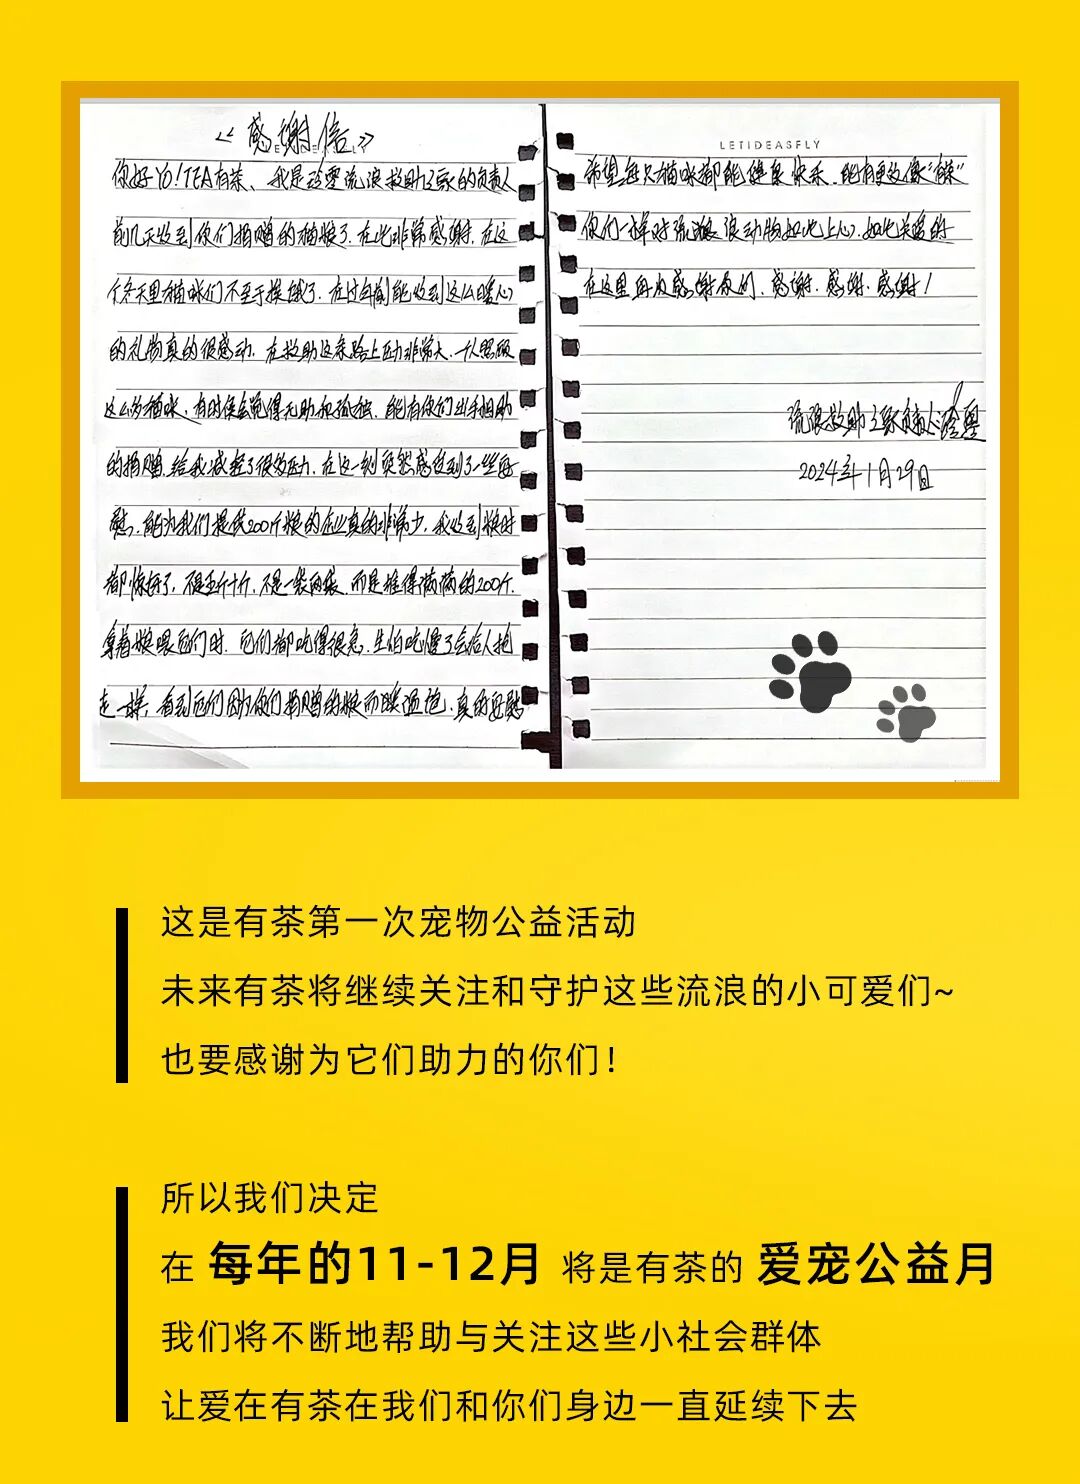 《感谢信》
你好YO!TEA有茶、我是玲零流浪救助之家的负责人
前几天收到你们捐赠的猫粮了.在此非常感谢.在这
个冬天里猫咪们不至于挨饿了.在过年前能收到这么暖心
的礼物真的很感动.在救助这条路上压力非常大.一人照顾
这么多猫咪、有时候会觉得无助和孤独.能有你们出手相助
的捐赠.给我减轻了很多压力.在这一刻突然感受到了一丝安
慰.能为我们提供200斤粮的企业真的非常少.我收到粮时
都惊讶了,不是五斤十斤,不是一袋两袋.而是堆得满满的200斤.
拿着粮喂它们时.它们都吃得很急.生怕吃慢了会给人抢
走一样,看到它们因为你们捐赠的粮而暖温饱.真的安慰
LETIDEASFLY
希望每只猫咪都能健康快乐.能有更多像"有茶"
你们一样对流浪动物如此上心.如此关爱的
在这里再次感谢你们、感谢.感谢.感谢!
流浪救助之家负责人
2024年1月29日
这是有茶第一次宠物公益活动
未来有茶将继续关注和守护这些流浪的小可爱们~
也要感谢为它们助力的你们!
所以我们决定
在 每年的11-12月 将是有茶的 爱宠公益月
我们将不断地帮助与关注这些小社会群体
让爱在有茶在我们和你们身边一直延续下去